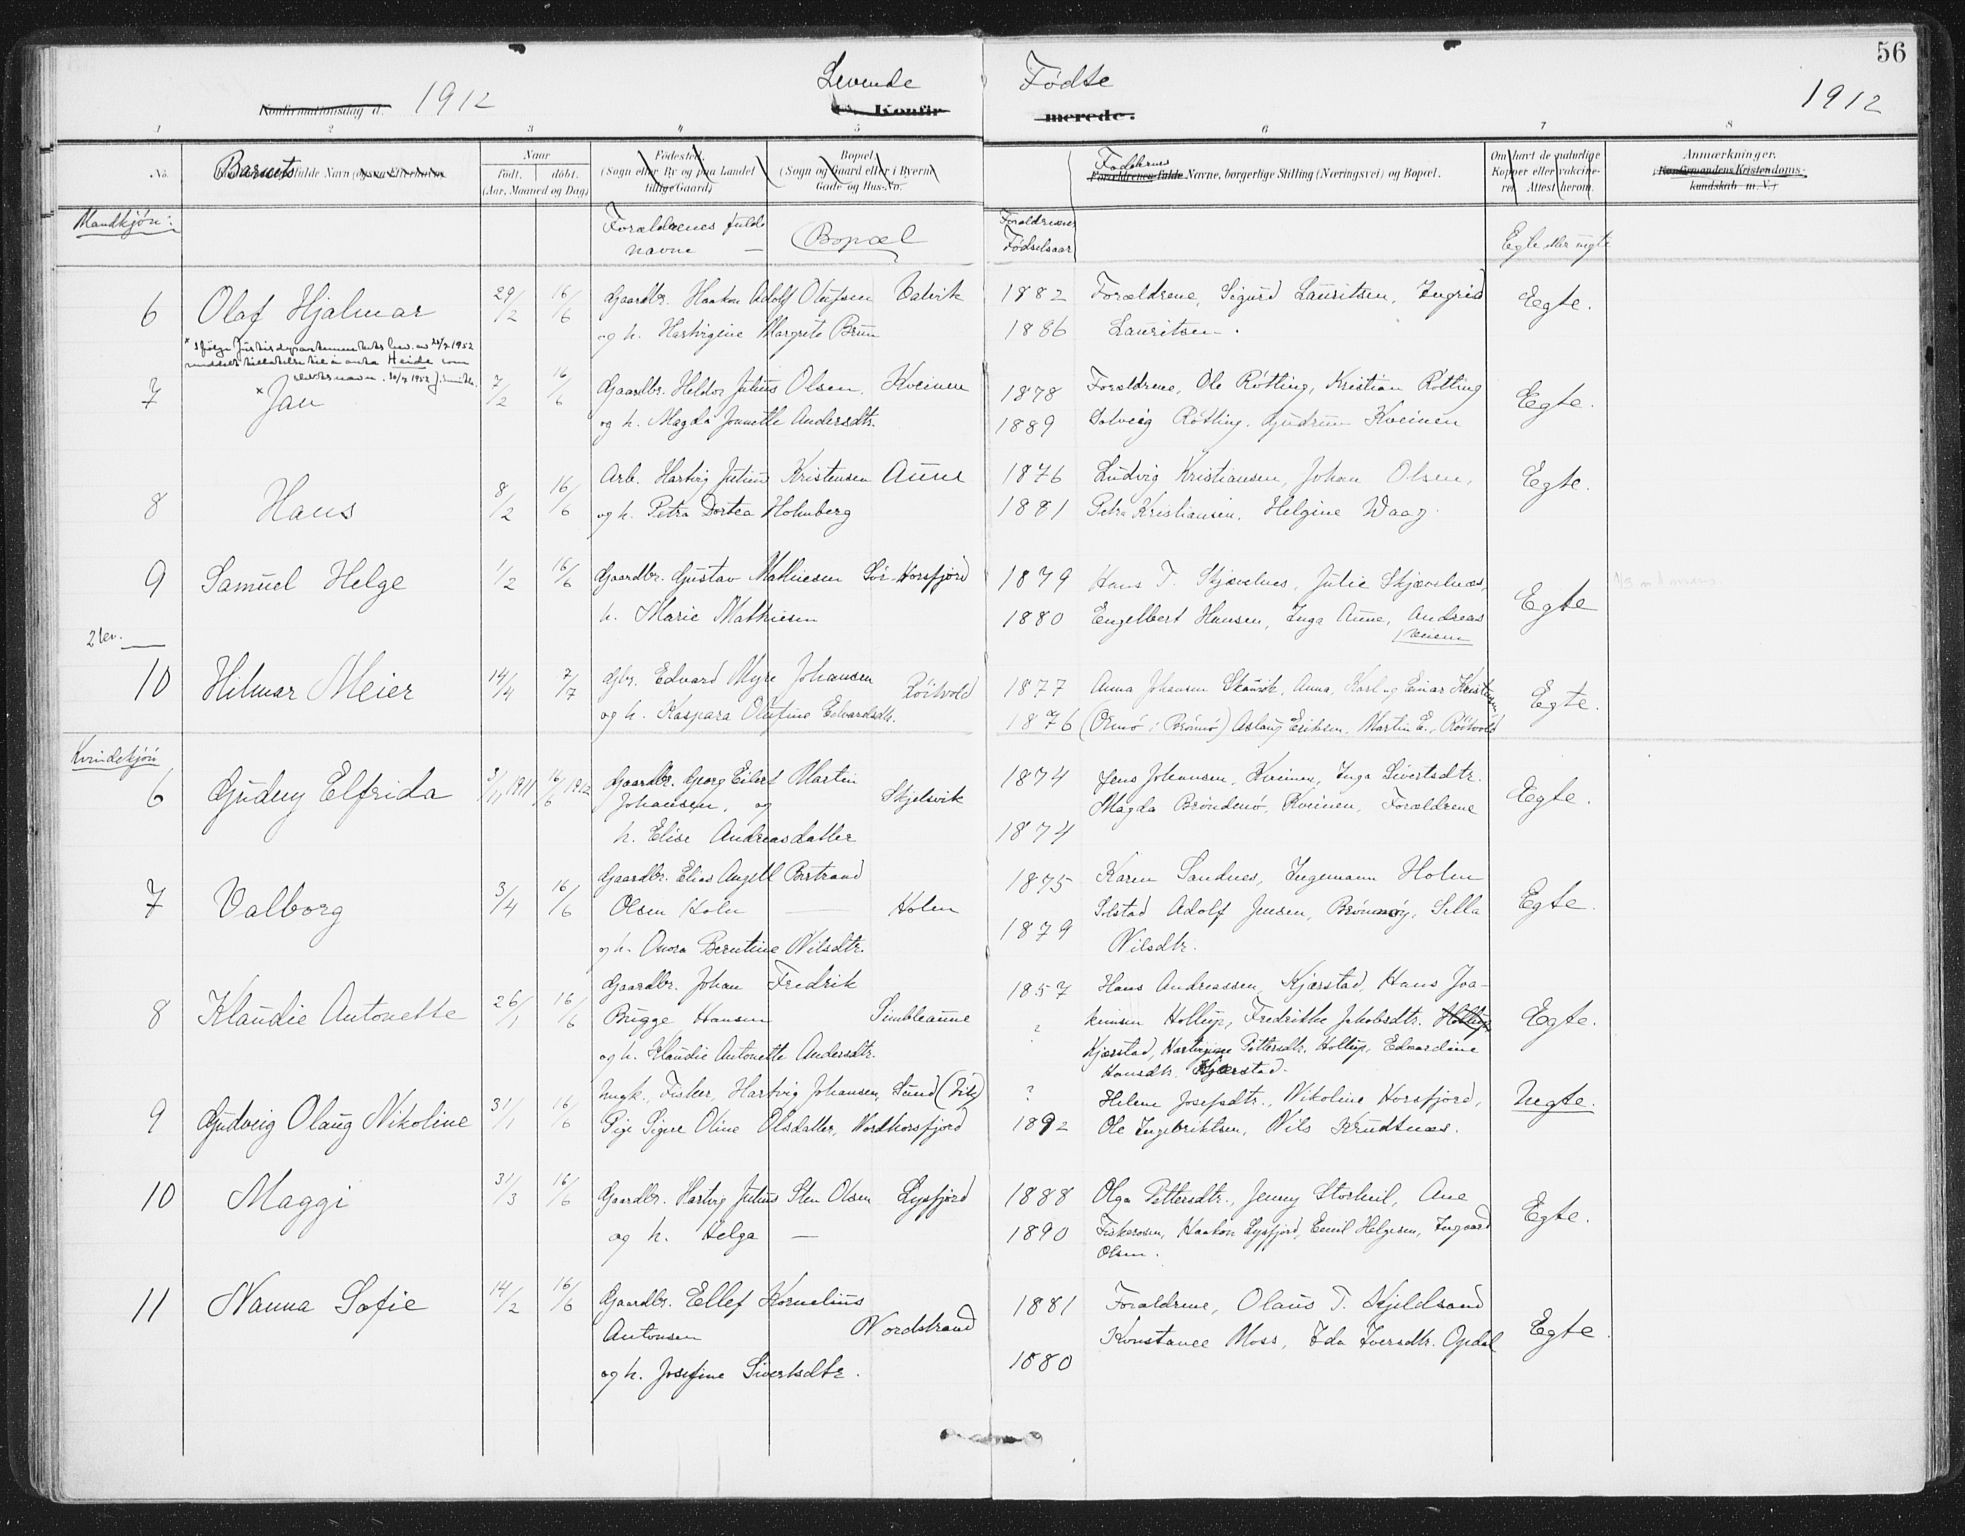 56
Levende Fødte
1912
1912
Konfirmationsdag d.
Konfir- merede.
1 2 3 4 5 6 7 8
No.
Barnets fulde Navn
Naar
født. døbt.
(Aar, Maaned og Dag)
Fødested.
(Sogn eller By og paa Landet
tillige Gaard)
Bopæl
(Sogn og Gaard eller i Byerne
Gade og Hus-No.
Faddernes
Forældrenes fulde Navne, borgerlige Stilling (Næringsvei) og Bopæl.
Om havt de naturlige
Kopper eller vakcine-
ret. Attest herom.
Anmærkninger.
(Konfirmandens Kristendoms-
kundskab m. V.)
Mandkjøn:
Forældrenes fulde
navne —
Bopæl
Forældrenes
Fødselsaar
Egte eller uegte
6 Olaf Hjalmar 29/2 16/6 Gaardbr. Haakon Adolf Olufsen Valvik 1882 Forældrene, Sigurd Lauritsen, Ingrid Egte.
og h. Hartvigine Margrete Brun 1886 Lauritsen.
7 × Jan 7/2 16/6 Gaardbr. Heldor Julius Olsen, Kveinen 1878 Forældrene, Ole Røtting, Kristian Røtting Egte.
og h. Magda Jonette Andersdtr. 1889 Solveig Røtting, Gudrun Kveinen
8 Hans 8/2 16/6 Arb. Hartvig Julius Kristensen Aune 1876 Ludvig Kristiansen, Johan Olsen, Egte.
og h. Petra Dortea Holmberg 1881 Petra Kristiansen, Helgine Waag.
9 Samuel Helge 1/2 16/6 Gaardbr. Gustav Mathiesen Sør-Horsfjord 1879 Hans T. Skjævelnes, Julie Skjævelnæs, Egte
h. Marie Mathiesen 1880 Engelbert Hansen, Inga Aune, Andreas
Kveinen
2 lev.
10 Hilmar Meier 14/4 7/7 Gbr. Edvard Myre Johansen Røitvold 1877 Anna Johansen Skausik, Anna, Karl og Einar Kristensen Egte.
og h. Kaspara Olufine Edvardsdtr. 1876 (Ormø i Brønnø) Aslaug Eriksen, Martin E., Røitvold
Kvindekjøn
6 Gudny Elfrida 3/11 1911 16/6 1912 Gaardbr. Georg Eilert Martin Skjelsvik 1874 Jens Johansen, Kveinen, Inga Sivertsdtr. Egte.
Johansen, og Magda Brøndmo, Kveinen, Forældrene
h. Elise Andreasdatter 1874
7 Valborg 3/4 16/6 Gaardbr. Elias Angell Bertrand 1875 Karen Sandnes, Ingemann Holen Egte.
Olsen Holen — Holen Solstad Adolf Jensen, Brønnøy, Silla
og h. Anora Berntine Nilsdtr. 1879 Nilsdtr.
8 Klaudie Antonette 26/1 16/6 Gaardbr. Johan Fredrik 1857 Hans Andreassen, Kjærstad, Hans Joa- Egte.
Brügge Hansen Simbleaune ? kimsen Hollup, Fredrikke Jakobsdtr. Hollup
og h. Klaudie Antonette Andersdtr. Kjærstad, Hartvigine Pettersdtr. Hollup, Edvardine
Hansdtr. Kjærstad.
9 Gudveig Olaug Nikoline 31/1 16/6 Ungk. Fisker, Hartvig Johansen, Sund (Vik) ? Helene Josefsdtr., Nikoline Horsfjord, Uegte.
Pige Signe Oline Olsdatter, Nordhorsfjord 1892 Ole Ingebriktsen, Nils Knudtnæs.
10 Maggi 31/3 16/6 Gaardbr. Hartvig Julius Sten Olsen Lysfjord 1888 Olga Pettersdtr., Jenny Storheil, Ane Egte.
og h. Helga — 1890 Fiskerosen, Haakon Lysfjord, Emil Helgesen, Ingvard
Olsen.
11 Nanna Sofie 14/2 16/6 Gaardbr. Ellef Kornelius 1881 Forældrene, Olaus T. Kjeldsand Egte.
Antonsen Nordstrand Konstance Moss, Ida Iversdtr. Opdal
og h. Josefine Sivertsdtr. 1880